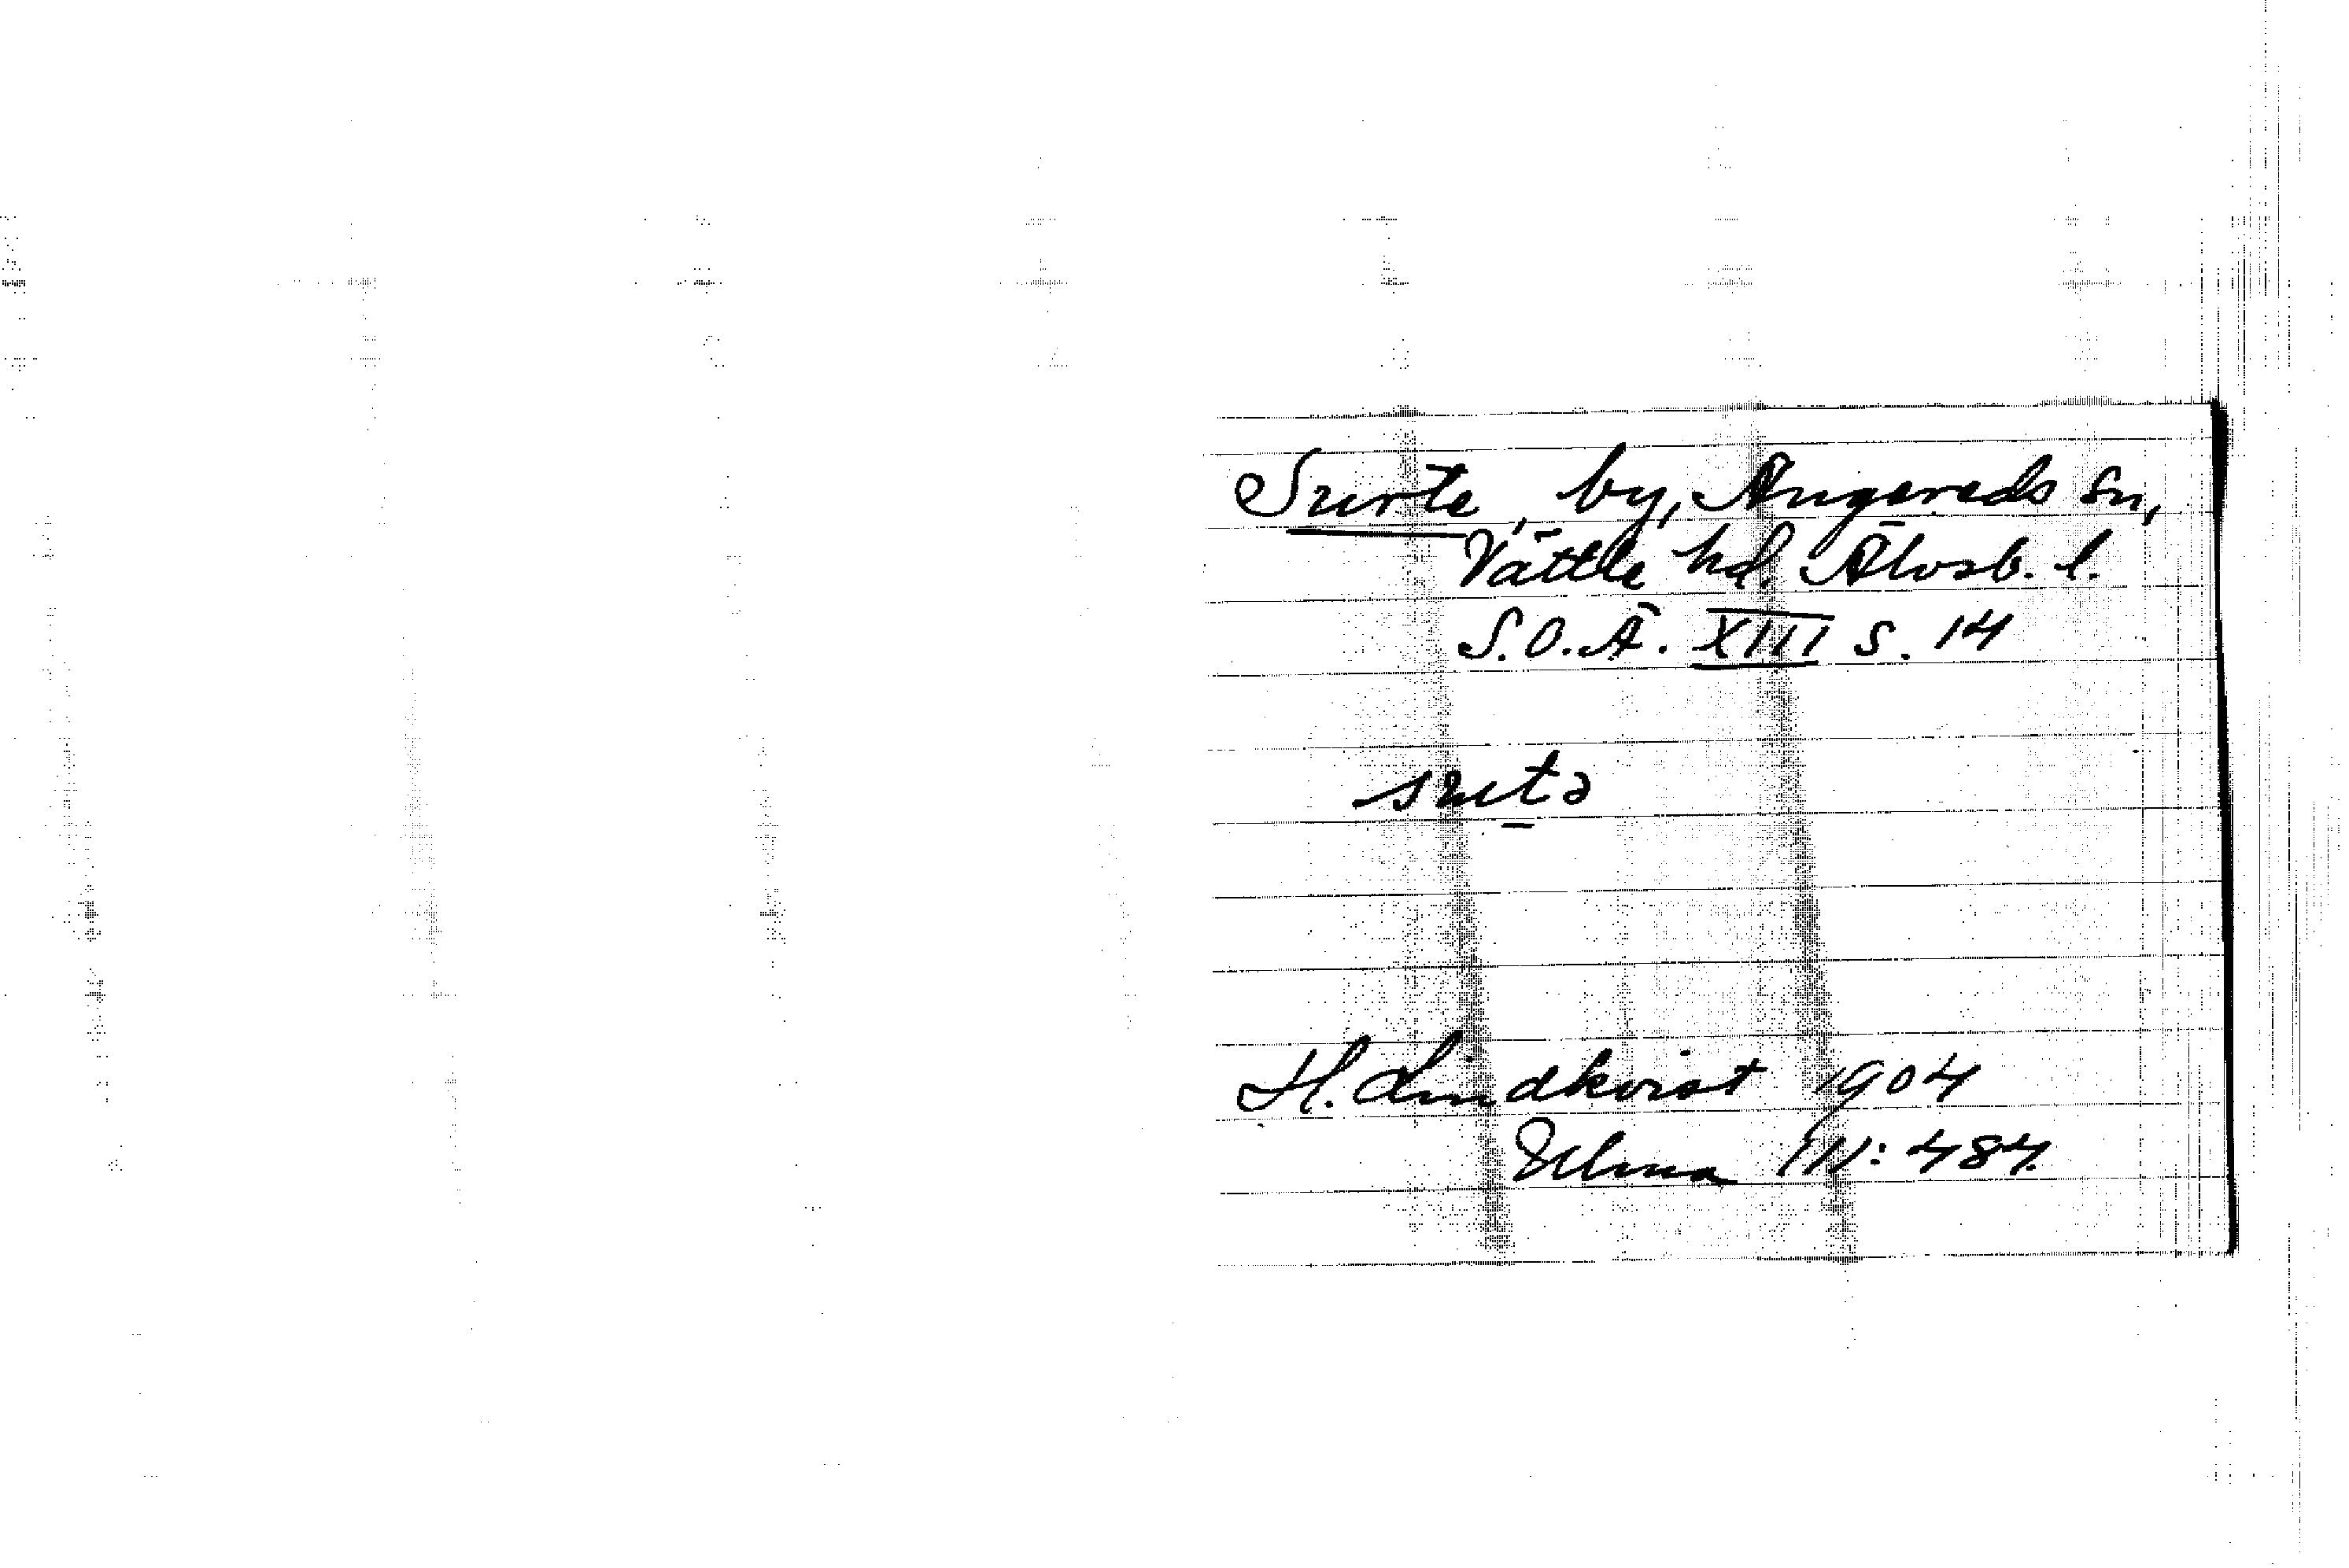 Surte, by, Angereds sn,
Vättle hd. Älvsb. l.
S.O.Ä. XIII s. 14
H. Lindkvist 1904
III: 484.